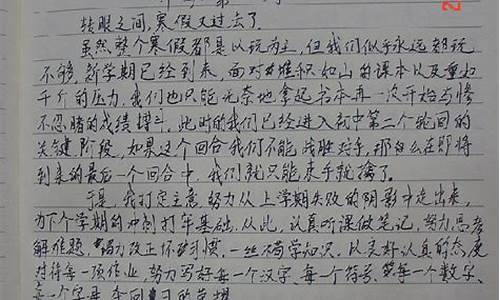 转眼之间，寒假又过去了。
虽然整个寒假都是以玩为主，但我们似乎永远都玩
不够。新学期已经到来，面对堆积如山的课本以及重如
千斤的压力，我们也只能无奈地拿起书本再一次开始与惨
不忍睹的成绩搏斗，此时的我们已经进入初中第二个轮回的
关键阶段，如果这个回合我们不能战胜对手，那么在即将
到来的最后一个回合中，我们就只能束手就擒了。
于是，我打定主意努力从上学期失败的阴影中走出来，
为下个学期的冲刺打牢基础，从此，认真听课做笔记，努力思考
解难题，努力改正坏习惯，一丝不苟学知识。以良好认真的态度
对待每一项作业，努力写好每一个汉字、每一个符号、每一个数字、
每一个字母